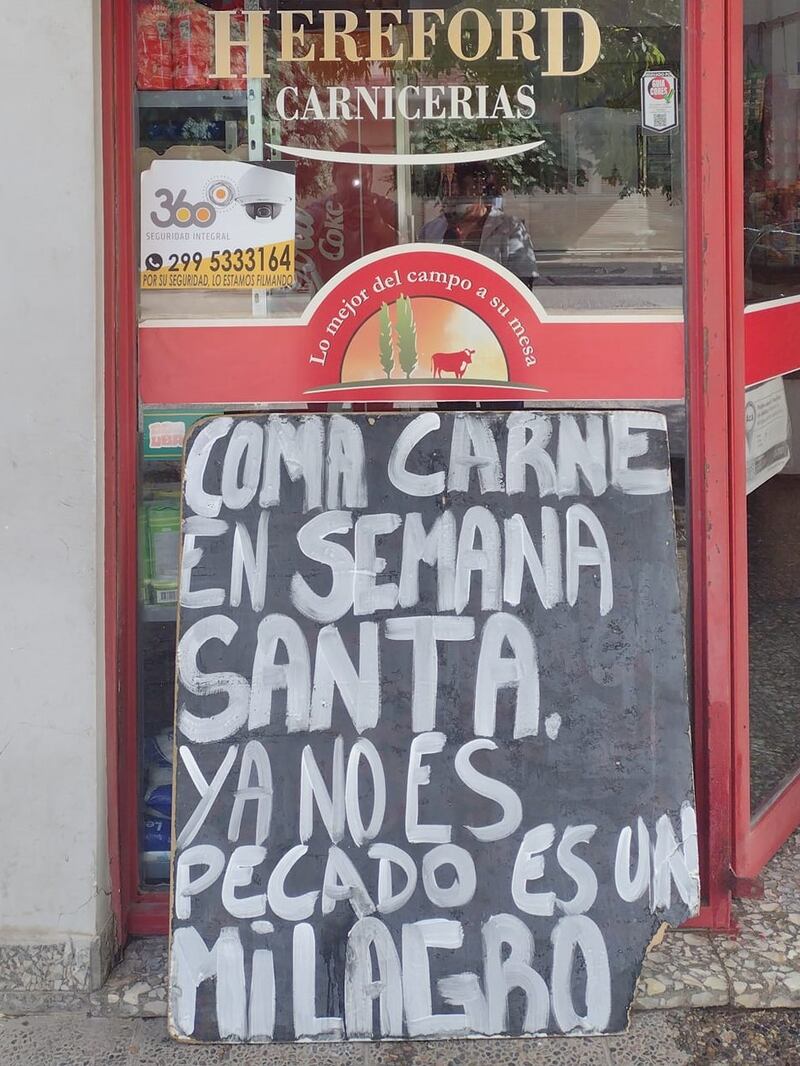 HEREFORD
CARNICERIAS
GUIA
CORES
360
SEGURIDAD INTEGRAL
299 5333164
POR SU SEGURIDAD, LO ESTAMOS FILMANDO
Coke
Lo mejor del campo a su mesa
COMA CARNE
EN SEMANA
SANTA.
YA NO ES
PECADO ES UN
MiLAGRO